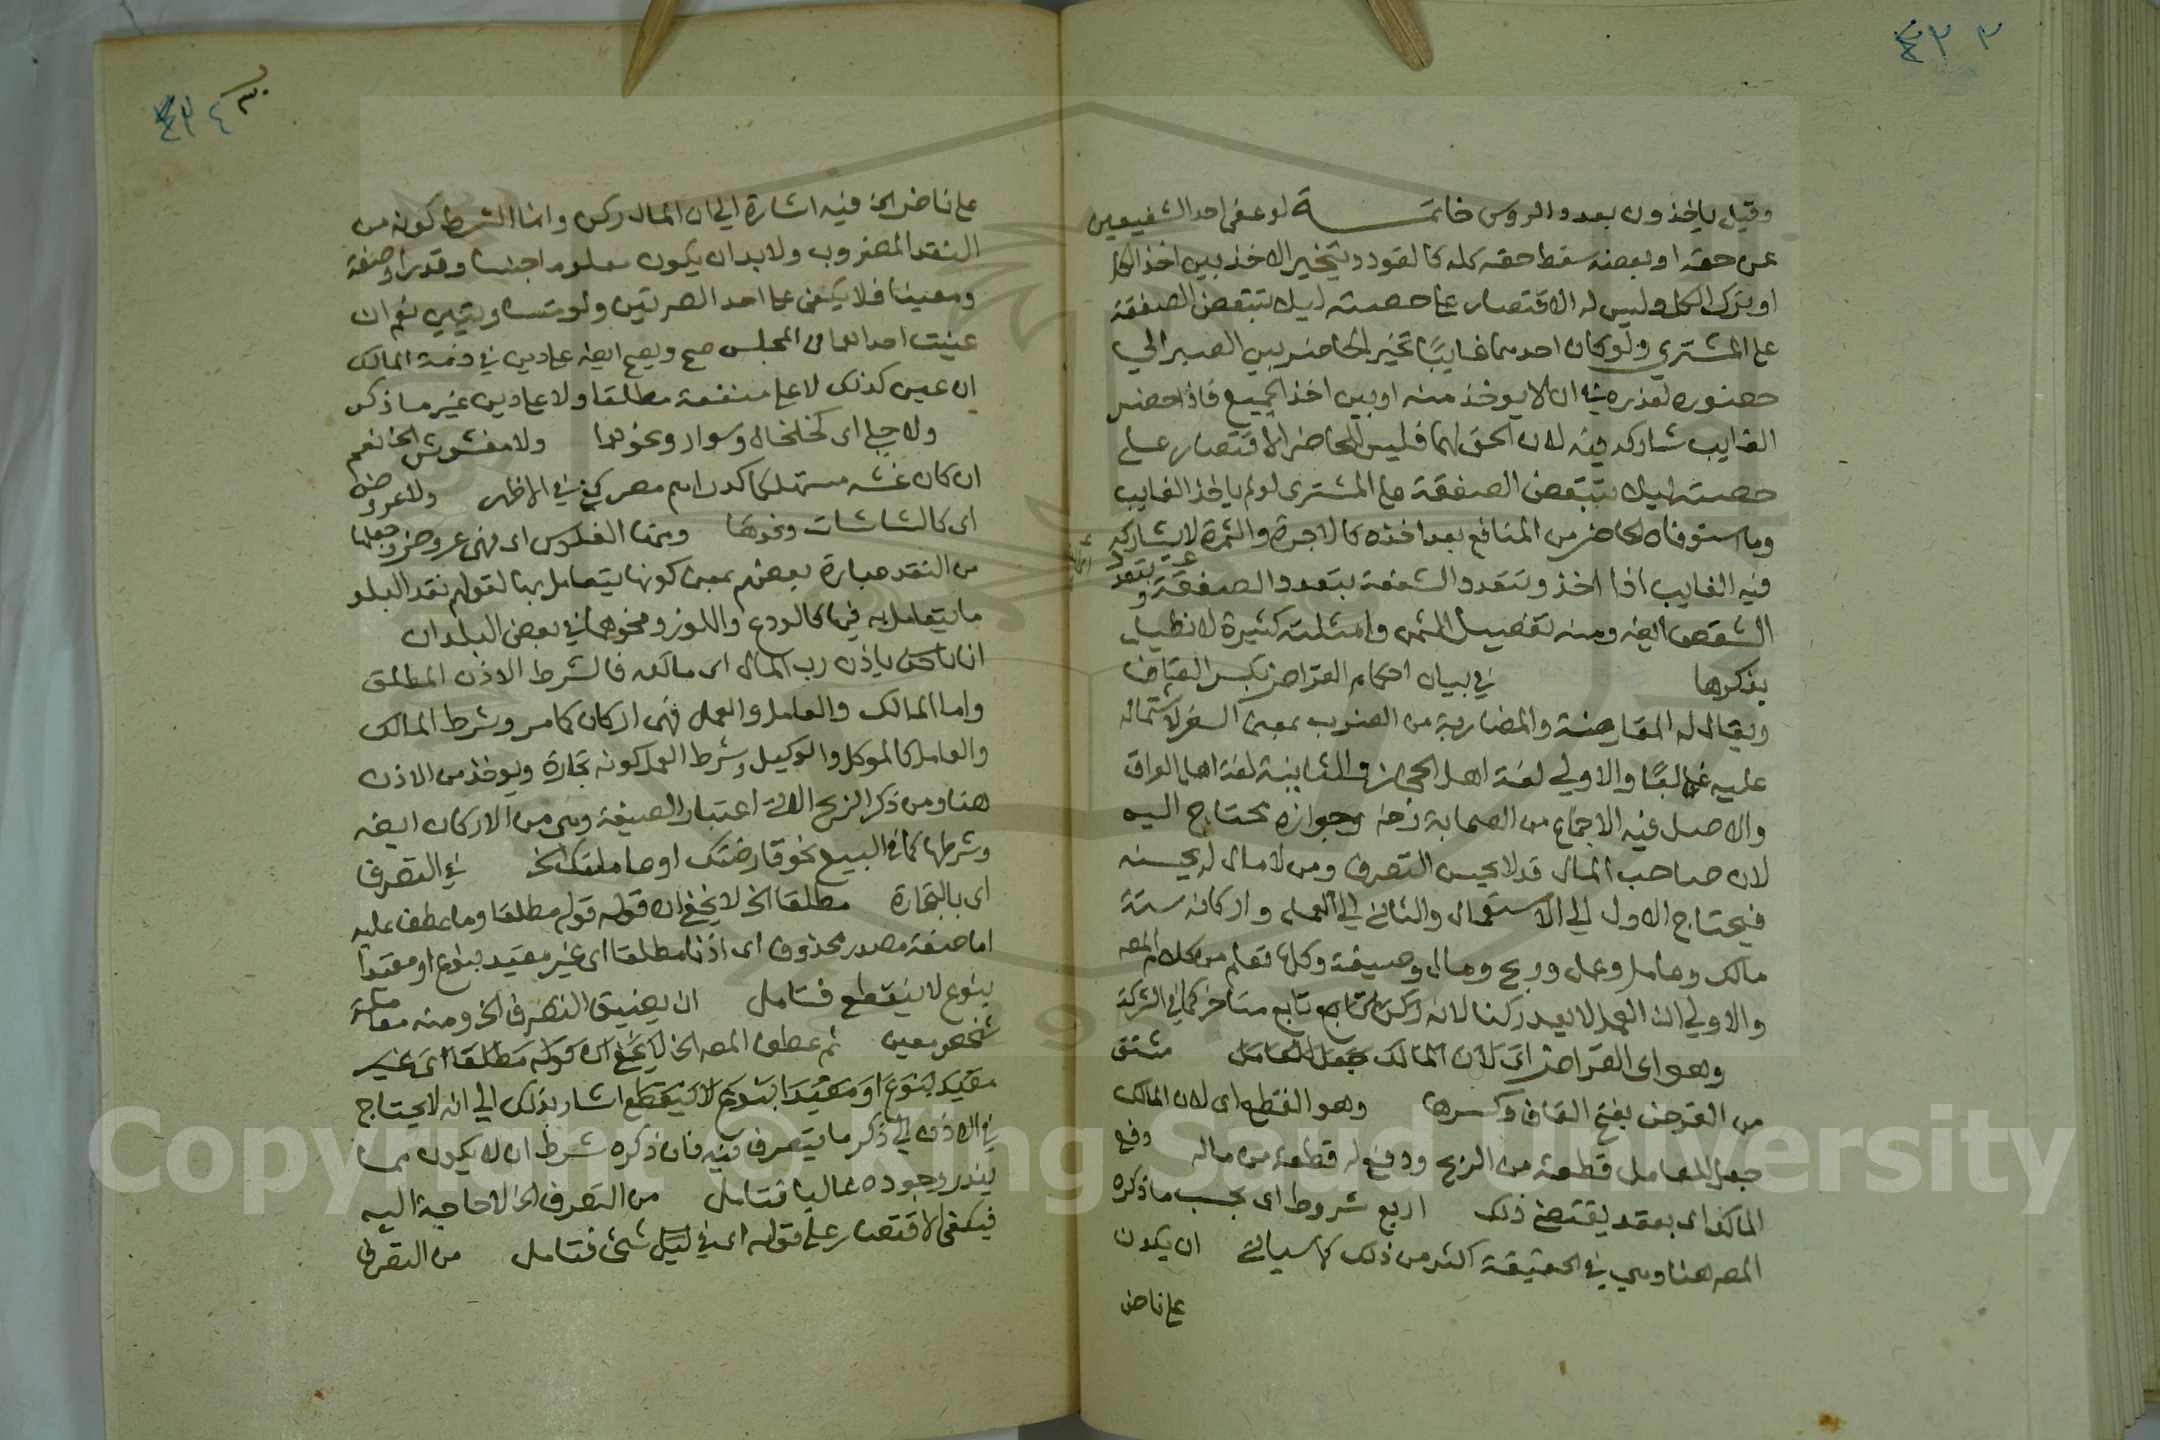 ٤٢٣ ٣
وقيل ياخذون بعدد الروس خاتمـــــة لو عفى احد الشفيعين
عن حقه او بعضه سقط حقه كله كالقود وتخير الاخذ بين اخذ الكل
او ترك الكل وليس له الاقتصار على حصته ليلا تتبعض الصفقة
على المشتري ولو كان احدهما غايبًا تخير الحاضر بين الصبر الي
حضوره لعذره في ان لا يوخذ منه او بين اخذ الجميع فاذا حضر
الغايب شاركه فيه لان الحق لهما فليس للحاضر الاقتصار على
حصته ليلا تتبعض الصفقة على المشتري لو لم ياخذ الغايب
وما استوفاه الحاضر من المنافع بعد اخذه كالاجرة والثمرة لا يشاركه
فيه الغايب اذا اخذ وتتعدد الشفعة بتعدد الصفقة و
الشقص ايضا ومنه تفصيل الثمن وامثلته كثيرة لا نطيل
بذكرها في بيان احكام القراض بكسر القاف
ويقال له المقارضة والمضاربة من الضرب بمعنى السفر لاشتماله
عليه غالبًا والاولي لغة اهل الحجاز والثانية لغة اهل العراق
والاصل فيه الاجماع من الصحابة وجوازه محتاج اليه
لان صاحب المال قد لا يحسن التصرف ومن لا مال له يحسنه
فيحتاج الاول الي الاستعمال والثاني الي العمل واركانه ستة
مالك وعامل وعمل وربح ومال وصيغة وكلها تعلم من كلام المصه
والاولي ان العمل لا يعد ركنا لانه تابع متاخر كما في الشركة
وهو اى القراض اى لان المالك جعل للعامل مشتق
من القرض بفتح القاف وكسرها وهو القطع اى لان المالك
جعل للعامل قطعة من الربح ودفع له قطعة من ماله دفع
المالك اى بعقد يقتضي ذلك اربع شروط اى بحسب ما ذكره
المصه هنا وهي في الحقيقة اكثر من ذلك كما سياتي ان يكون
على ناض
٤٢٤
على ناض الخ فيه اشارة الي ان المال ركن وانما الشرط كونه من
النقد المضروب ولا بد ان يكون معلوما جنسا وقدرا وصفة
ومعينا فلا يكفى على احد الصرتين ولو متساويتين نعم ان
عينت احداهما في المجلس صح ويصح ايضا على دين في ذمة المالك
ان عين كذلك لا على منفعة مطلقا ولا على دين غير ما ذكر
ولا حلي اى كخلخال وسوار ونحوهما ولا مغشوش الخ نعم
ان كان غشه مستهلكا كدراهم مصر كفى في الاظهر ولا عروض
اى كالشاشات ونحوها ومنها الفلوس اى فهى عروض وجعلها
من النقد عبارة بعضهم بمعنى كونها يتعامل بها لقولهم نقد البلد
ما يتعامل به فيها كالودع واللوز ونحوهما في بعض البلدان
ان ياذن رب المال اى مالكه فالشرط الاذن المطلق
واما المالك والعامل والعمل فهى اركان كما مر وشرط المالك
والعامل كالموكل والوكيل وشرط العمل كونه تجارة ويوخذ من الاذن
هنا ومن ذكر الربح الاتي اعتبار الصيغة وهى من الاركان ايضا
وشرطها كما في البيع نحو قارضتك او عاملتك الخ في التصرف
اى بالتجارة مطلقا الخ لا يخفى ان قوله مطلقا وما عطف عليه
اما صفة مصدر محذوف اى اذنا مطلقا اى غير مقيد بنوع او مقيدا
بنوع لا ينقطع فتامل ان يضيق التصرف الخ ومنه معاملة
شخص معين ثم عطف المصه الخ لا يخفى ان قوله مطلقا اى غير
مقيد بنوع او مقيدا بنوع لا ينقطع اشار بذلك الي انه لا يحتاج
في الاذن الي ذكر ما يتصرف فيه فان ذكره شرط ان لا يكون مما
يندر وجوده غالبا فتامل من التصرف الخ لا حاجة اليه
فيكفى الاقتصار على قوله اى في شئ فتامل من التصرف
Copyright © King Saud University